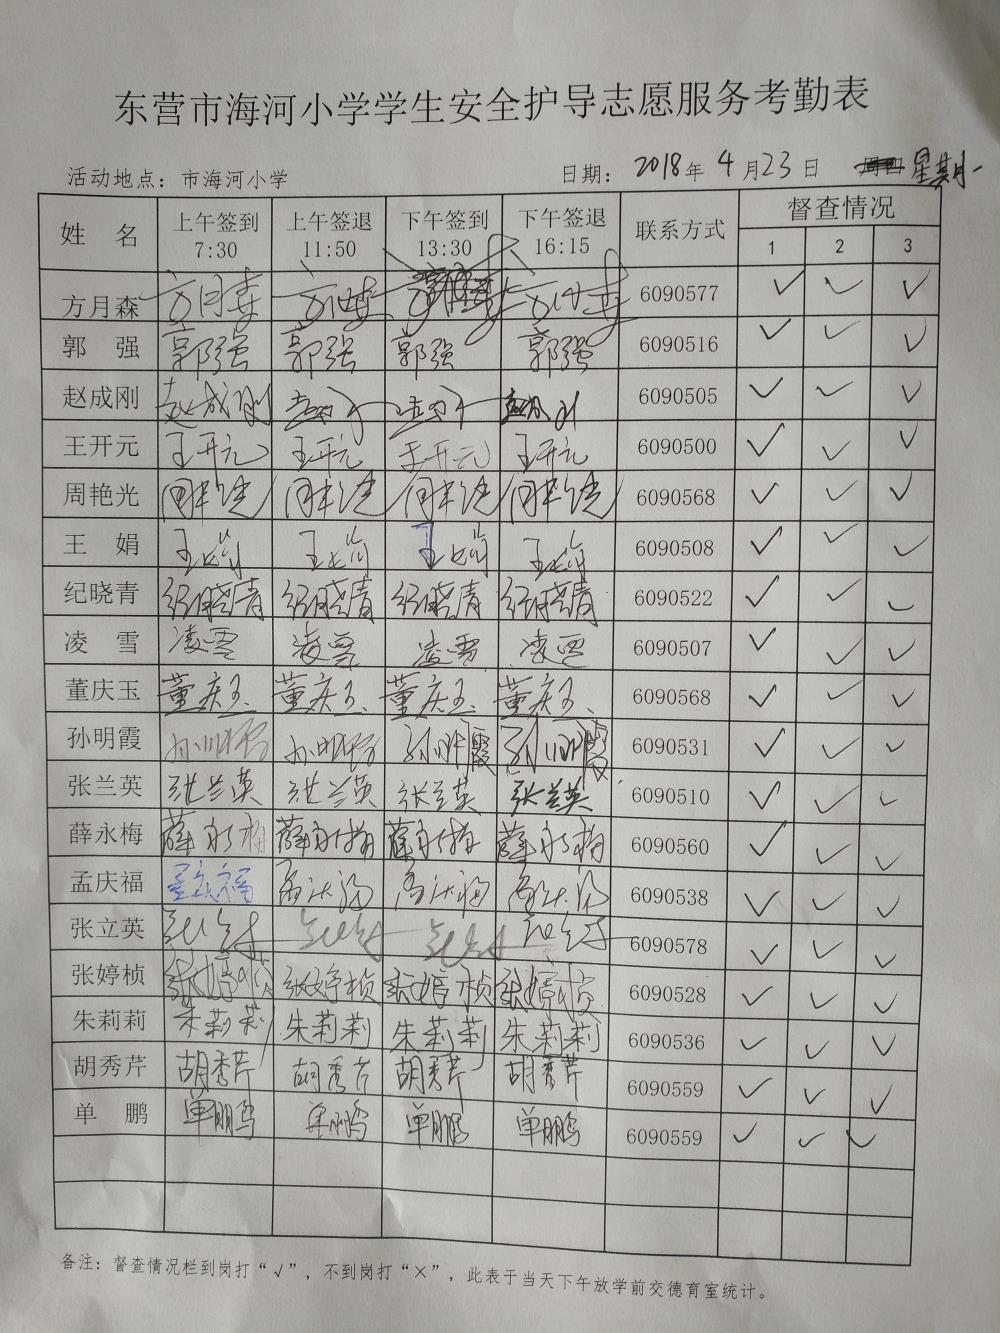 东营市海河小学学生安全护导志愿服务考勤表
活动地点：市海河小学 日期：2018年4月23日 星期一
姓 名 上午签到 7:30 上午签退 11:50 下午签到 13:30 下午签退 16:15 联系方式 督查情况
1 2 3
方月森 方月森 方月森 方月森 方月森 6090577 ✓ ✓ ✓
郭 强 郭强 郭强 郭强 郭强 6090516 ✓ ✓ ✓
赵成刚 赵成刚 6090505 ✓ ✓ ✓
王开元 王开元 王开元 王开元 王开元 6090500 ✓ ✓ ✓
周艳光 6090568 ✓ ✓ ✓
王 娟 王娟 王娟 王娟 王娟 6090508 ✓ ✓ ✓
纪晓青 纪晓青 纪晓青 纪晓青 纪晓青 6090522 ✓ ✓ ✓
凌 雪 凌雪 凌雪 凌雪 凌雪 6090507 ✓ ✓ ✓
董庆玉 董庆玉 董庆玉 董庆玉 董庆玉 6090568 ✓ ✓ ✓
孙明霞 孙明霞 孙明霞 孙明霞 孙明霞 6090531 ✓ ✓ ✓
张兰英 张兰英 张兰英 张兰英 张兰英 6090510 ✓ ✓ ✓
薛永梅 薛永梅 薛永梅 薛永梅 薛永梅 6090560 ✓ ✓ ✓
孟庆福 孟庆福 孟庆福 孟庆福 孟庆福 6090538 ✓ ✓ ✓
张立英 6090578 ✓ ✓ ✓
张婷桢 张婷桢 张婷桢 张婷桢 张婷桢 6090528 ✓ ✓ ✓
朱莉莉 朱莉莉 朱莉莉 朱莉莉 朱莉莉 6090536 ✓ ✓ ✓
胡秀芹 胡秀芹 胡秀芹 胡秀芹 胡秀芹 6090559 ✓ ✓ ✓
单 鹏 单鹏 单鹏 单鹏 单鹏 6090559 ✓ ✓ ✓
备注：督查情况栏到岗打“√”，不到岗打“×”，此表于当天下午放学前交德育室统计。